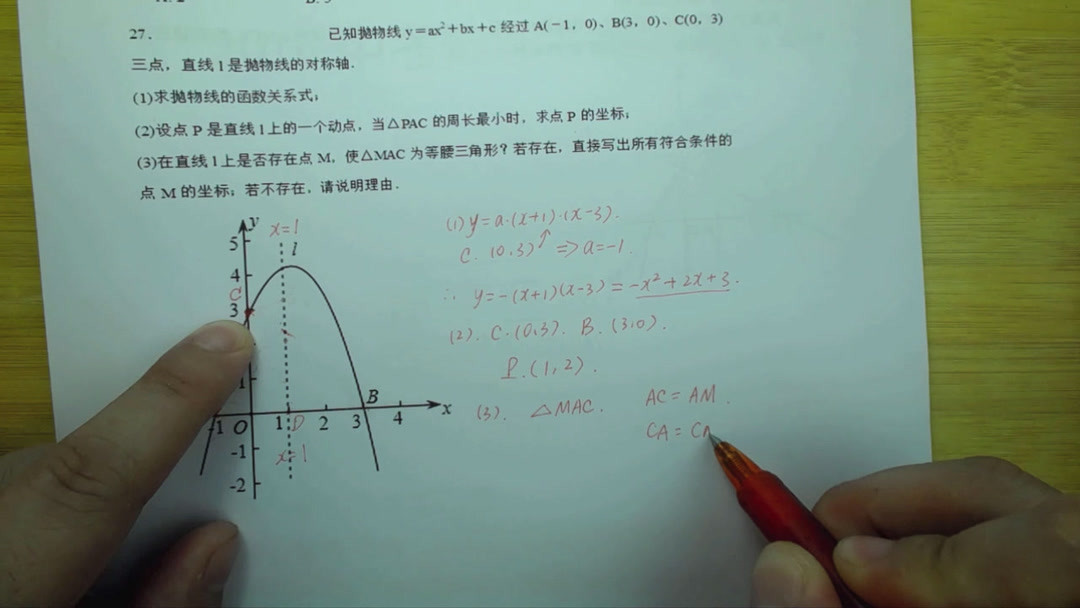 27.
已知抛物线 y=ax²+bx+c 经过 A(-1, 0)、B(3, 0)、C(0, 3)
三点, 直线 l 是抛物线的对称轴.
(1)求抛物线的函数关系式;
(2)设点 P 是直线 l 上的一个动点, 当△PAC 的周长最小时, 求点 P 的坐标;
(3)在直线 l 上是否存在点 M, 使△MAC 为等腰三角形? 若存在, 直接写出所有符合条件的
点 M 的坐标; 若不存在, 请说明理由.
y
x=1
5
l
4
C
3
1
B
x
-1 O 1 D 2 3 4
-1
x=1
-2
(1) y=a·(x+1)·(x-3).
C. (0,3) ⇒ a=-1.
∴ y=-(x+1)(x-3)=-x²+2x+3.
(2). C.(0,3). B.(3,0).
P.(1,2).
(3). △MAC. AC=AM.
CA=